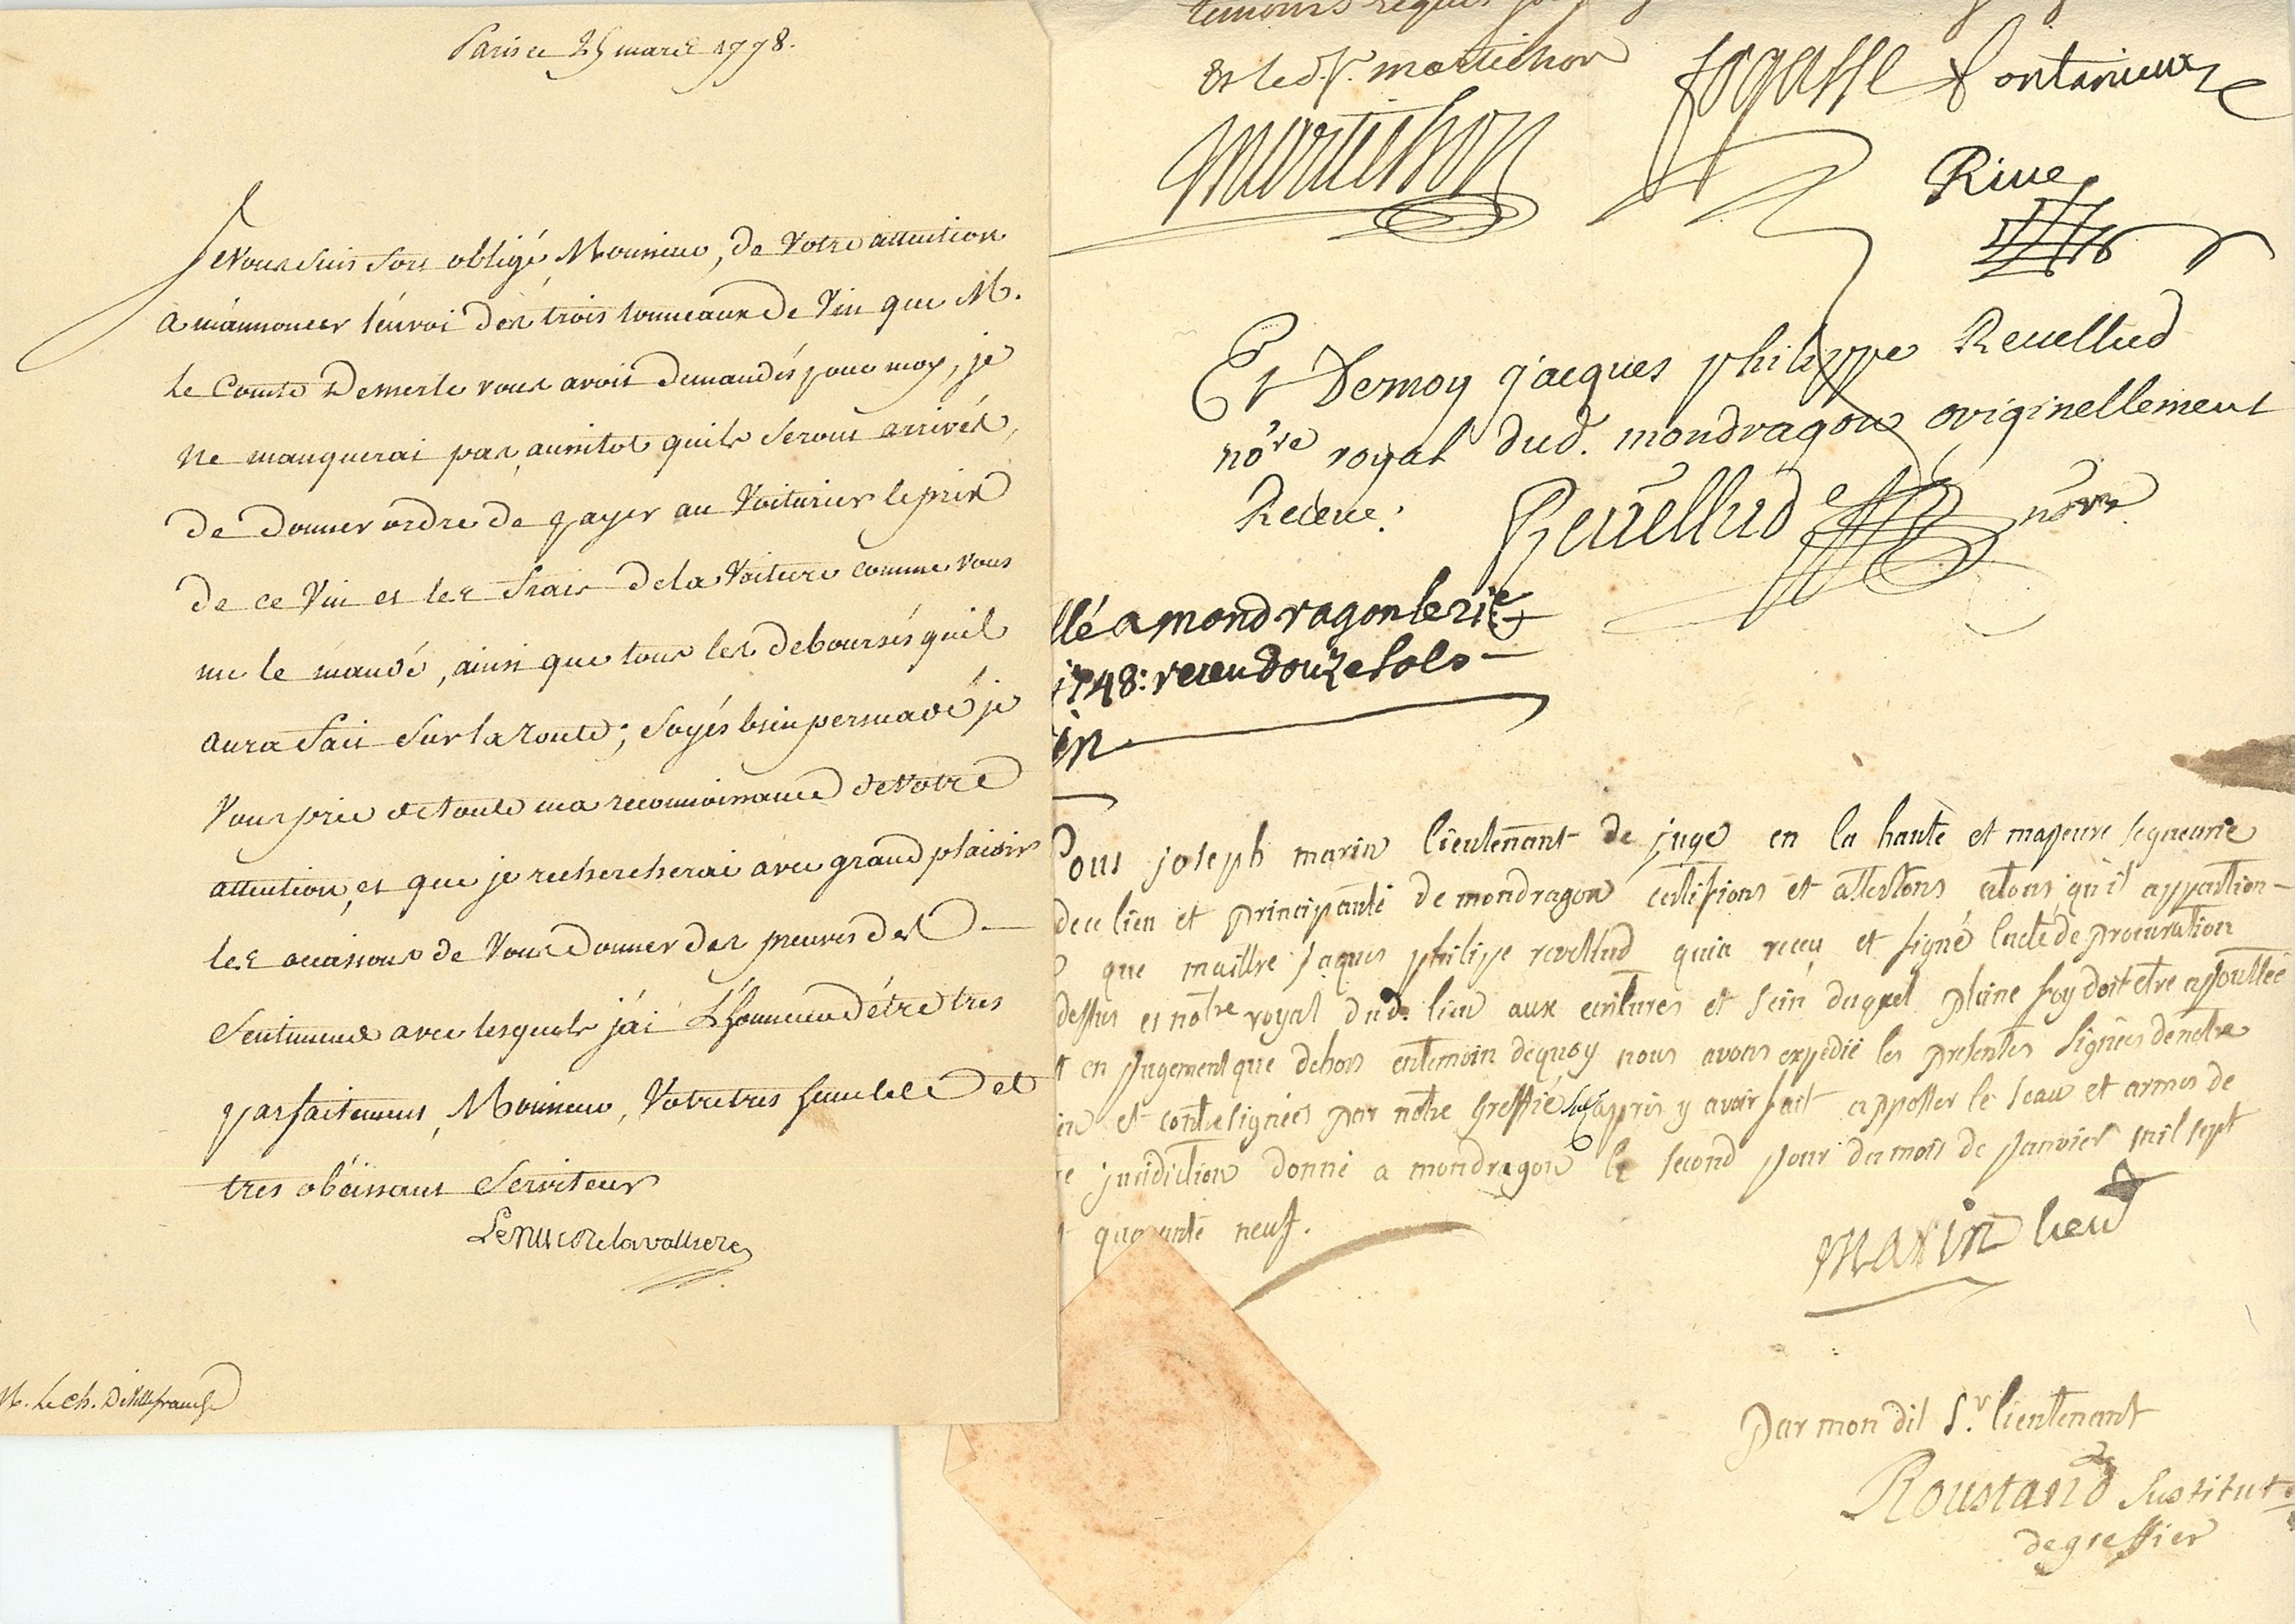 Paris ce 25 mars 1778.
Je vous suis fort obligé, Monsieur, de votre attention
a m'annoncer l'envoi des trois tonneaux de Vin que M.
le Comte Demerle vous avoit demandés pour moy, je
ne manquerai pas, aussitot quils seront arrivés,
de donner ordre de payer au Voiturier le prix
de ce Vin et les frais de la Voiture comme vous
me le mandé, ainsi que tous les deboursés quil
aura fait sur la route; soyés bien persuadé je
vous prie de toute ma reconnoissance de votre
attention, et que je rechercherai avec grand plaisir
les occasions de vous donner des preuves des
sentimens avec lesquels j'ai L'honneur d'étre tres
parfaitement, Monsieur, Votre tres humble et
tres obéissant Serviteur
Le Duc De lavalliere
M. Le Ch. De Villefranche
temoins requis
et led. Sr. martichon
martichon
fogasse fontanieux
Rive
Et De moy jacques philippe Reuellud
nore royal dud. mondragon originellement
Receue:
Reuellud nore
llé a mondragon le 21e
1748: receu douze sols
in
Nous joseph marin lieutenant de juge en la haute et majeure segneurie
de ce lieu et principauté de mondragon certifions et attestons atous qu'il appartien-
que maittre jaques philippe revellud qui a receu et signé lacte de procuration
dessus es notre royal dud. lieu aux ecritures et sein duquel pleine foy doit etre ajoutteé
t en jugement que dehors en temoin dequoy nous avons expedié les presentes signées de notre
in et contresignées par notre Greffié Sub. appris y avoir fait apposser le seau et armes de
e juridiction donné a mondragon le second jour du mois de janvier mil sept
quarante neuf.
marin lieut
Par mon dit Sr. lieutenant
Roustand Sustitut
de greffier